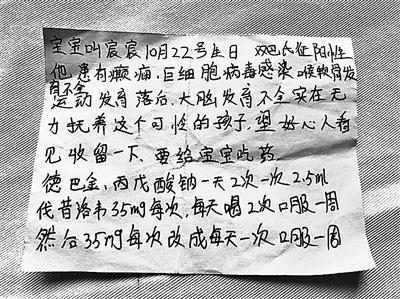 宝宝叫宸宸10月22号生日 双巴氏征阳性
他患有癫痫、巨细胞病毒感染 喉软骨发
育不全
运动发育落后、大脑发育不全实在无
力抚养这个可怜的孩子,望好心人看
见收留一下、要给宝宝吃药.
德巴金、丙戊酸钠一天2次一次2.5ml
代昔洛韦35mg每次,每天喝2次口服一周
然后35mg每次改成每天一次口服一周